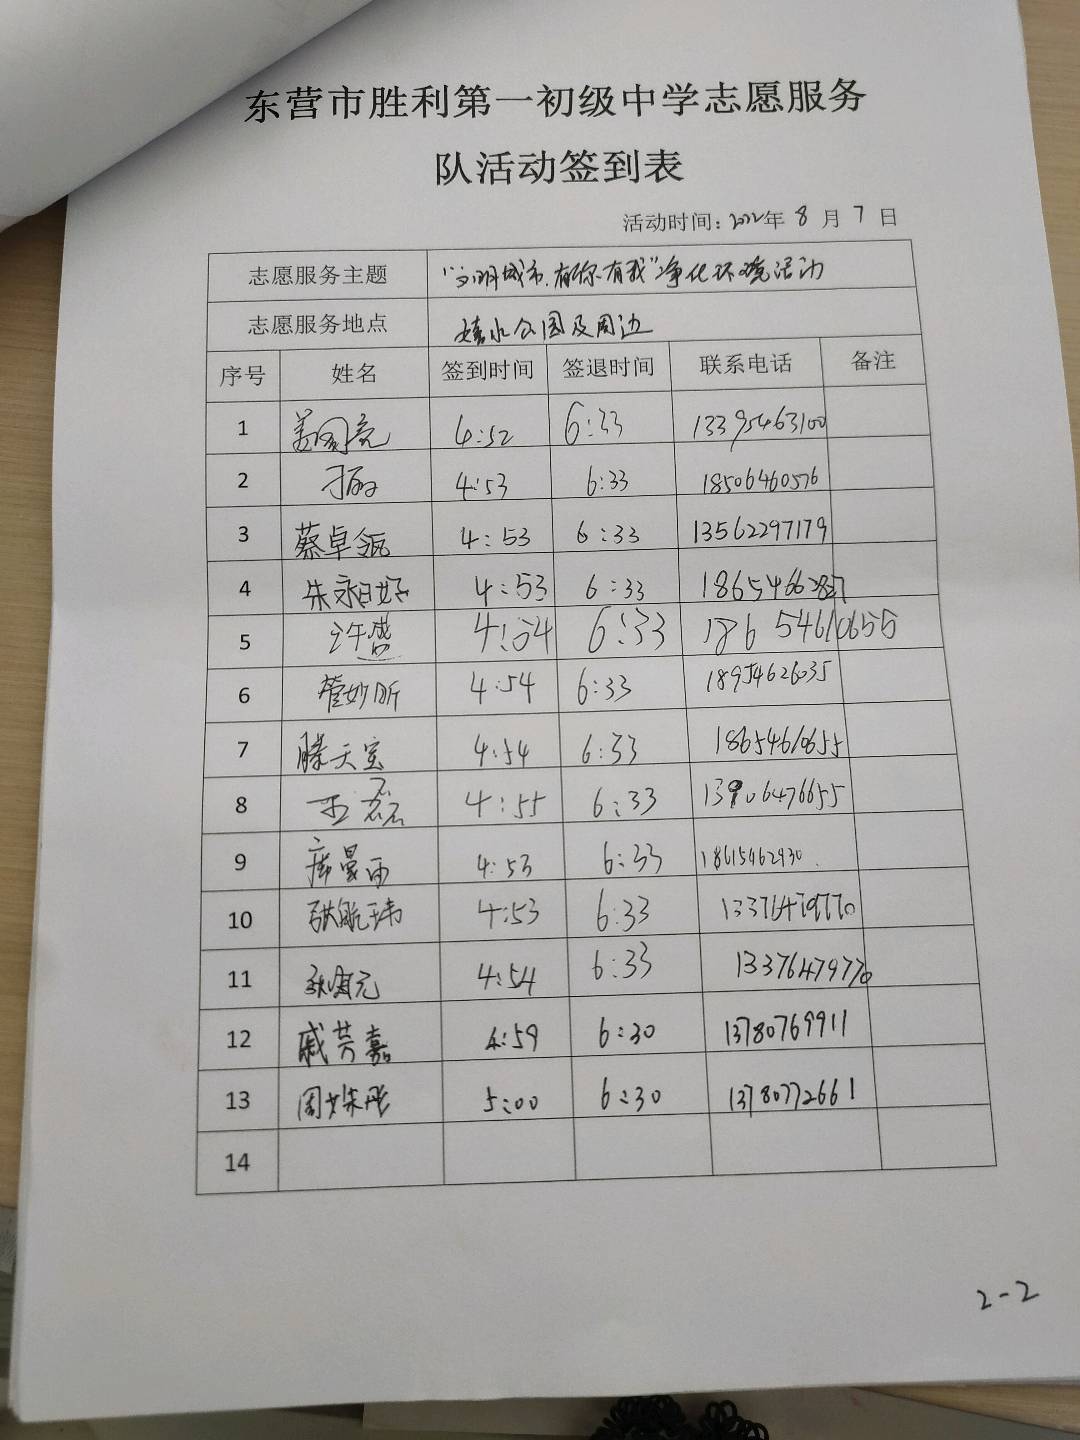 东营市胜利第一初级中学志愿服务
队活动签到表
活动时间：2022年 8 月 7 日
志愿服务主题 “文明城市，有你有我”净化环境活动
志愿服务地点 水公园及周边
序号 姓名 签到时间 签退时间 联系电话 备注
1 4:52 6:33 13395463100
2 4:53 6:33 18506460576
3 蔡卓 4:53 6:33 13562297179
4 4:53 6:33
5 许 4:54 6:33 186 54610655
6 管妙昕 4:54 6:33 18954626035
7 滕天宝 4:54 6:33 18654610655
8 王磊 4:55 6:33 13906476655
9 4:53 6:33 18615462930
10 张航玮 4:53 6:33 13376479770
11 4:54 6:33 13376479770
12 戚芳嘉 4:59 6:30 13780769911
13 周姝彤 5:00 6:30 13780772661
14
2-2